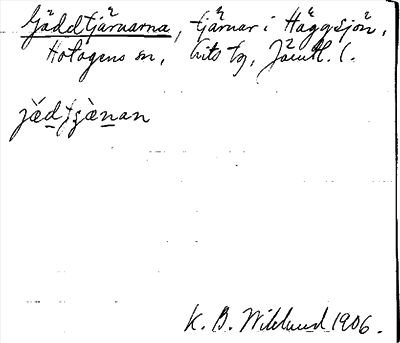 Gäddtjärnarna, tjärnar i Häggsjön,
Hotagens sn, Lits tg, Jämtl. l.
jǽdtjæ̀nan
K. B. Wiklund 1906.